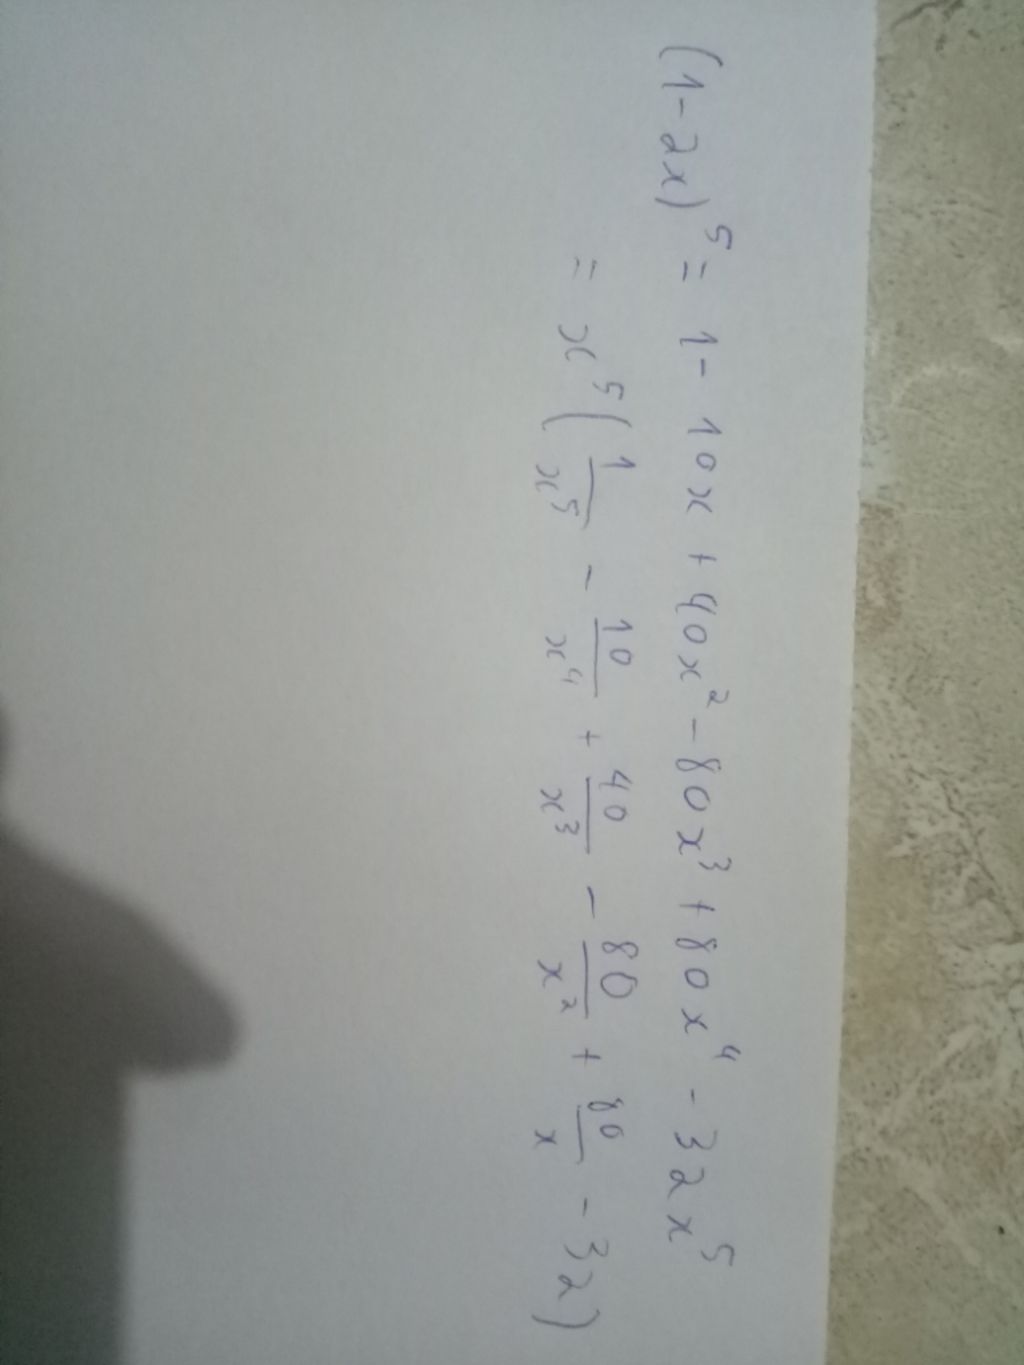 (1-2x)⁵ = 1 - 10x + 40x² - 80x³ + 80x⁴ - 32x⁵
= x⁵(1/x⁵ - 10/x⁴ + 40/x³ - 80/x² + 80/x - 32)